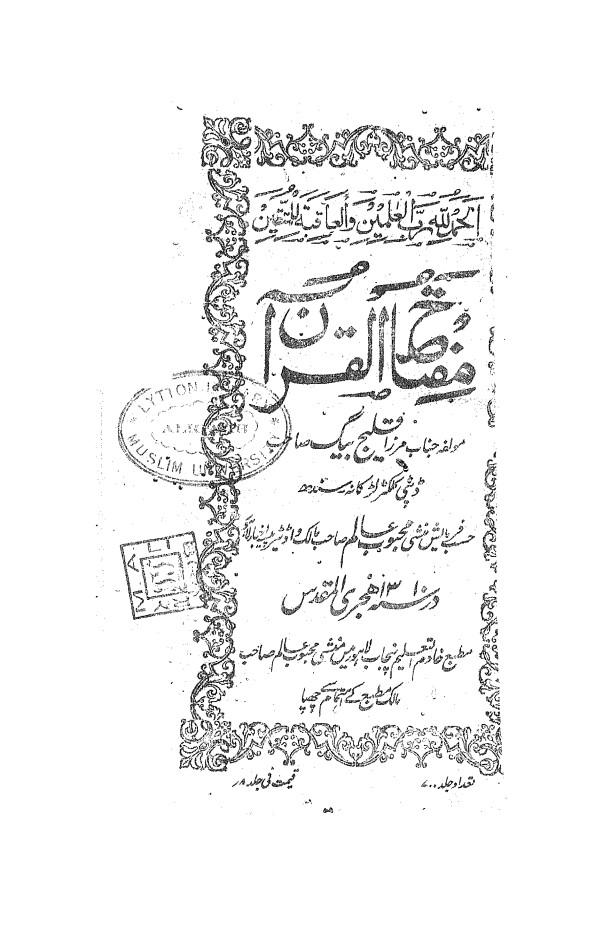 الحمد لله رب العلمین والعاقبة للمتقین
مفتاح القرآن
مولفہ جناب مرزا قلیچ بیگ صاحب
ڈپٹی کلکٹر لاڑکانہ سندھ
حسب فرمایش منشی محبوب عالم صاحب مالک و اڈیٹر پیسہ اخبار لاہور
در سنہ ۱۳۱۰ ہجری المقدس
مطبع خادم التعلیم پنجاب لاہور میں منشی محبوب عالم صاحب
مالک مطبع کے اہتمام سے چھپا
تعداد جلد ۷۰۰ قیمت فی جلد ۸؍
LYTTON LIBRARY
ALIGARH
MUSLIM UNIVERSITY